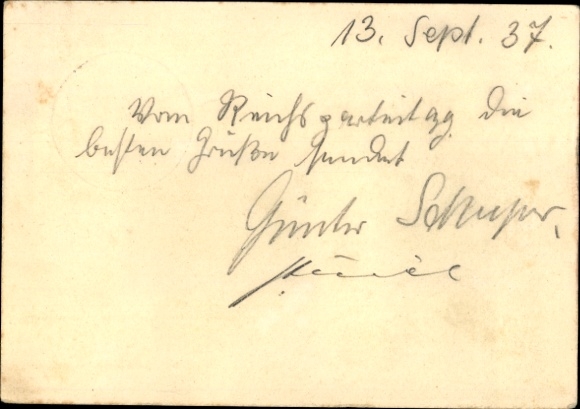 13. Sept. 37.
Vom Reichsparteitag die
besten Grüße sendet
Günter